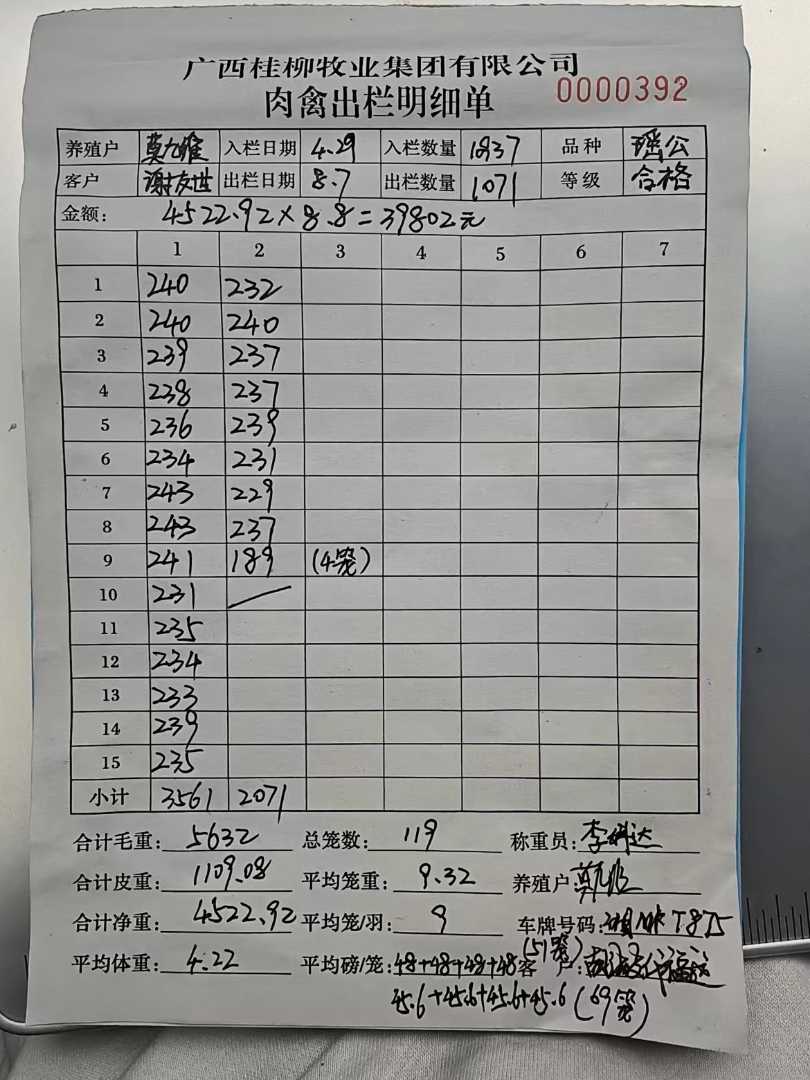 广西桂柳牧业集团有限公司
肉禽出栏明细单 0000392
养殖户 莫九维 入栏日期 4.29 入栏数量 1837 品种 瑶公
客户 谢友世 出栏日期 8.7 出栏数量 1071 等级 合格
金额: 4522.92×8.8=39802元
1 2 3 4 5 6 7
1 240 232
2 240 240
3 239 237
4 238 237
5 236 239
6 234 231
7 243 229
8 243 237
9 241 189 (4笼)
10 231
11 235
12 234
13 233
14 239
15 235
小计 3561 2071
合计毛重: 5632 总笼数: 119 称重员: 李 达
合计皮重: 1109.08 平均笼重: 9.32 养殖户
合计净重: 4522.92 平均笼/羽: 9 车牌号码: T875
平均体重: 4.22 平均磅/笼: 48+48+48+48 (51笼) 客户:
45.6+45.6+45.6+45.6 (69笼)